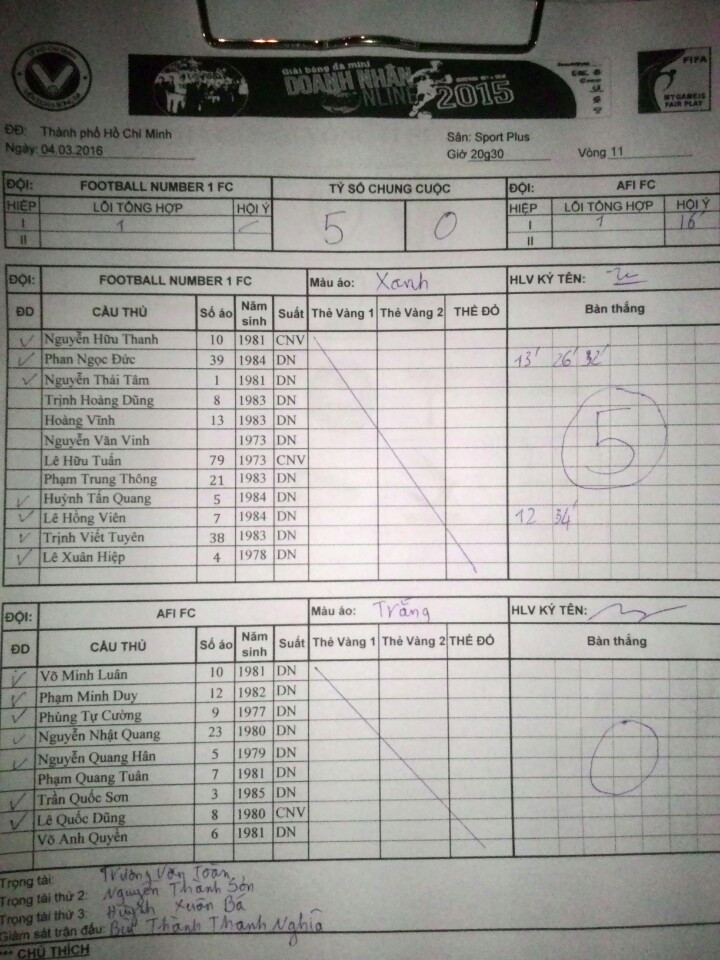 Giải bóng đá mini
DOANH NHÂN
NLINE 2015
FIFA
MY GAME IS
FAIR PLAY
ĐĐ: Thành phố Hồ Chí Minh
Ngày: 04.03.2016
Sân: Sport Plus
Giờ 20g30 Vòng 11
ĐỘI: FOOTBALL NUMBER 1 FC TỶ SỐ CHUNG CUỘC ĐỘI: AFI FC
HIỆP LỖI TỔNG HỢP HỘI Ý 5 0 HIỆP LỖI TỔNG HỢP HỘI Ý
I 1 I 1 16'
II II
ĐỘI: FOOTBALL NUMBER 1 FC Màu áo: Xanh HLV KÝ TÊN:
ĐD CẦU THỦ Số áo Năm sinh Suất Thẻ Vàng 1 Thẻ Vàng 2 THẺ ĐỎ Bàn thắng
Nguyễn Hữu Thanh 10 1981 CNV
Phan Ngọc Đức 39 1984 DN 13' 26' 32'
Nguyễn Thái Tâm 1 1981 DN
Trịnh Hoàng Dũng 8 1983 DN
Hoàng Vĩnh 13 1983 DN
Nguyễn Văn Vinh 1973 DN 5
Lê Hữu Tuấn 79 1973 CNV
Phạm Trung Thông 21 1983 DN
Huỳnh Tấn Quang 5 1984 DN
Lê Hồng Viên 7 1984 DN 12 34'
Trịnh Viết Tuyên 38 1983 DN
Lê Xuân Hiệp 4 1978 DN
ĐỘI: AFI FC Màu áo: Trắng HLV KÝ TÊN:
ĐD CẦU THỦ Số áo Năm sinh Suất Thẻ Vàng 1 Thẻ Vàng 2 THẺ ĐỎ Bàn thắng
Võ Minh Luân 10 1981 DN
Phạm Minh Duy 12 1982 DN
Phùng Tự Cường 9 1977 DN
Nguyễn Nhật Quang 23 1980 DN
Nguyễn Quang Hân 5 1979 DN 0
Phạm Quang Tuân 7 1981 DN
Trần Quốc Sơn 3 1985 DN
Lê Quốc Dũng 8 1980 CNV
Võ Anh Quyền 6 1981 DN
Trọng tài: Trương Văn Toàn
Trọng tài thứ 2: Nguyễn Thanh Sơn
Trọng tài thứ 3: Huỳnh Xuân Bá
Giám sát trận đấu: Bùi Thành Thanh Nghĩa
*** CHÚ THÍCH